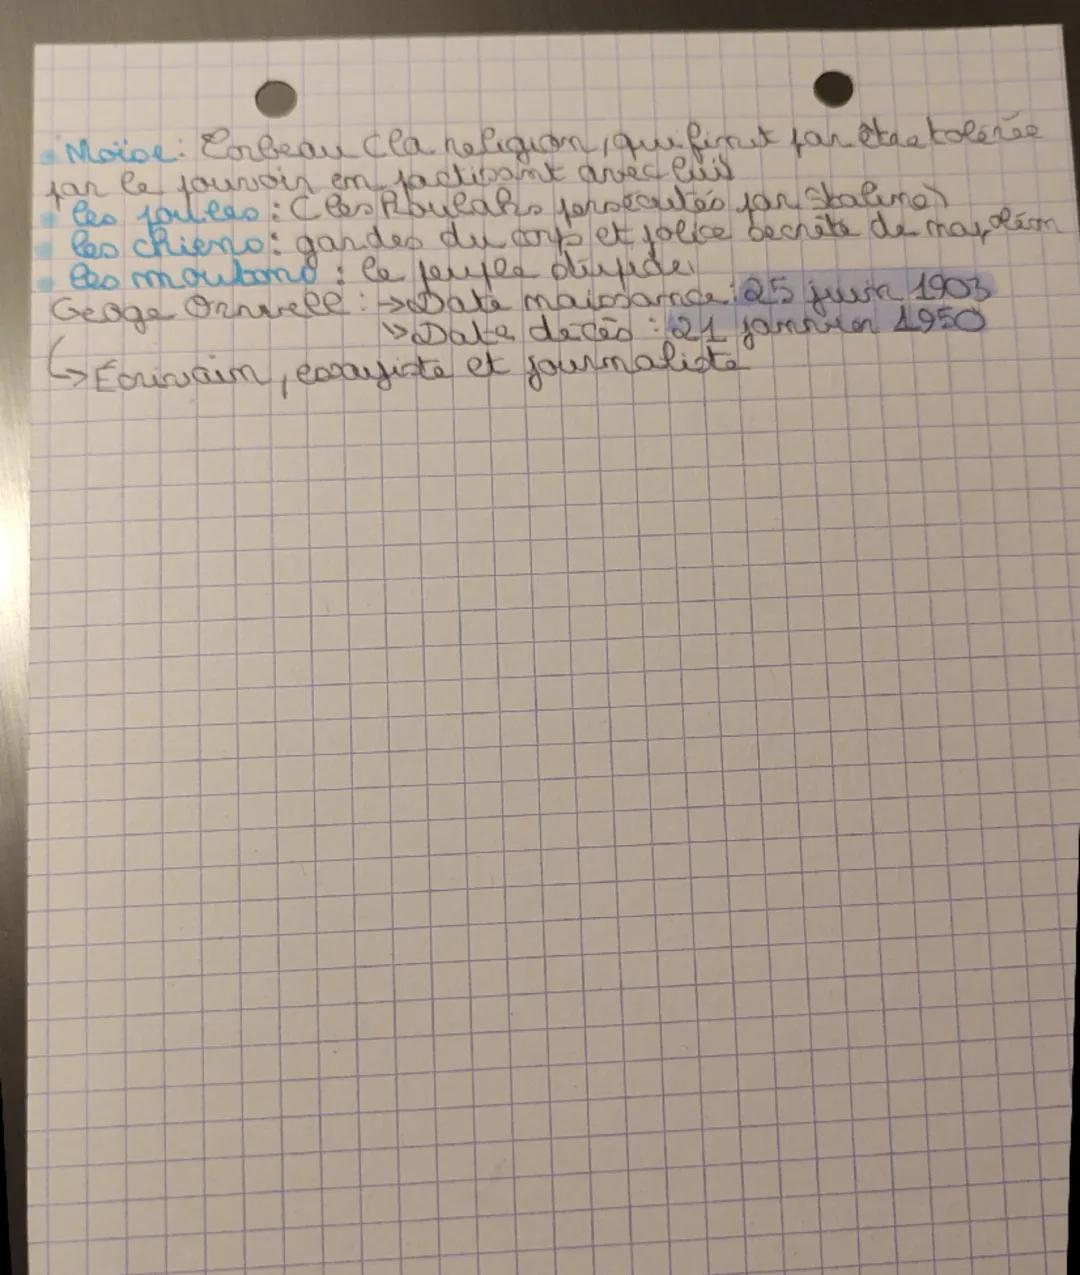 • Moïse : Corbeau (la religion, qui finit par être tolérée
par le pouvoir en pactisant avec lui)
• les poules : (les Koulaks persécutés par Staline)
• les chiens : gardes du corps et police secrète de napoléon
• les moutons : le peuple stupide
Geoge Orwell : →Date naissance : 25 juin 1903
↘Date décès : 21 janvier 1950
↳ Écrivain, essayiste et journaliste